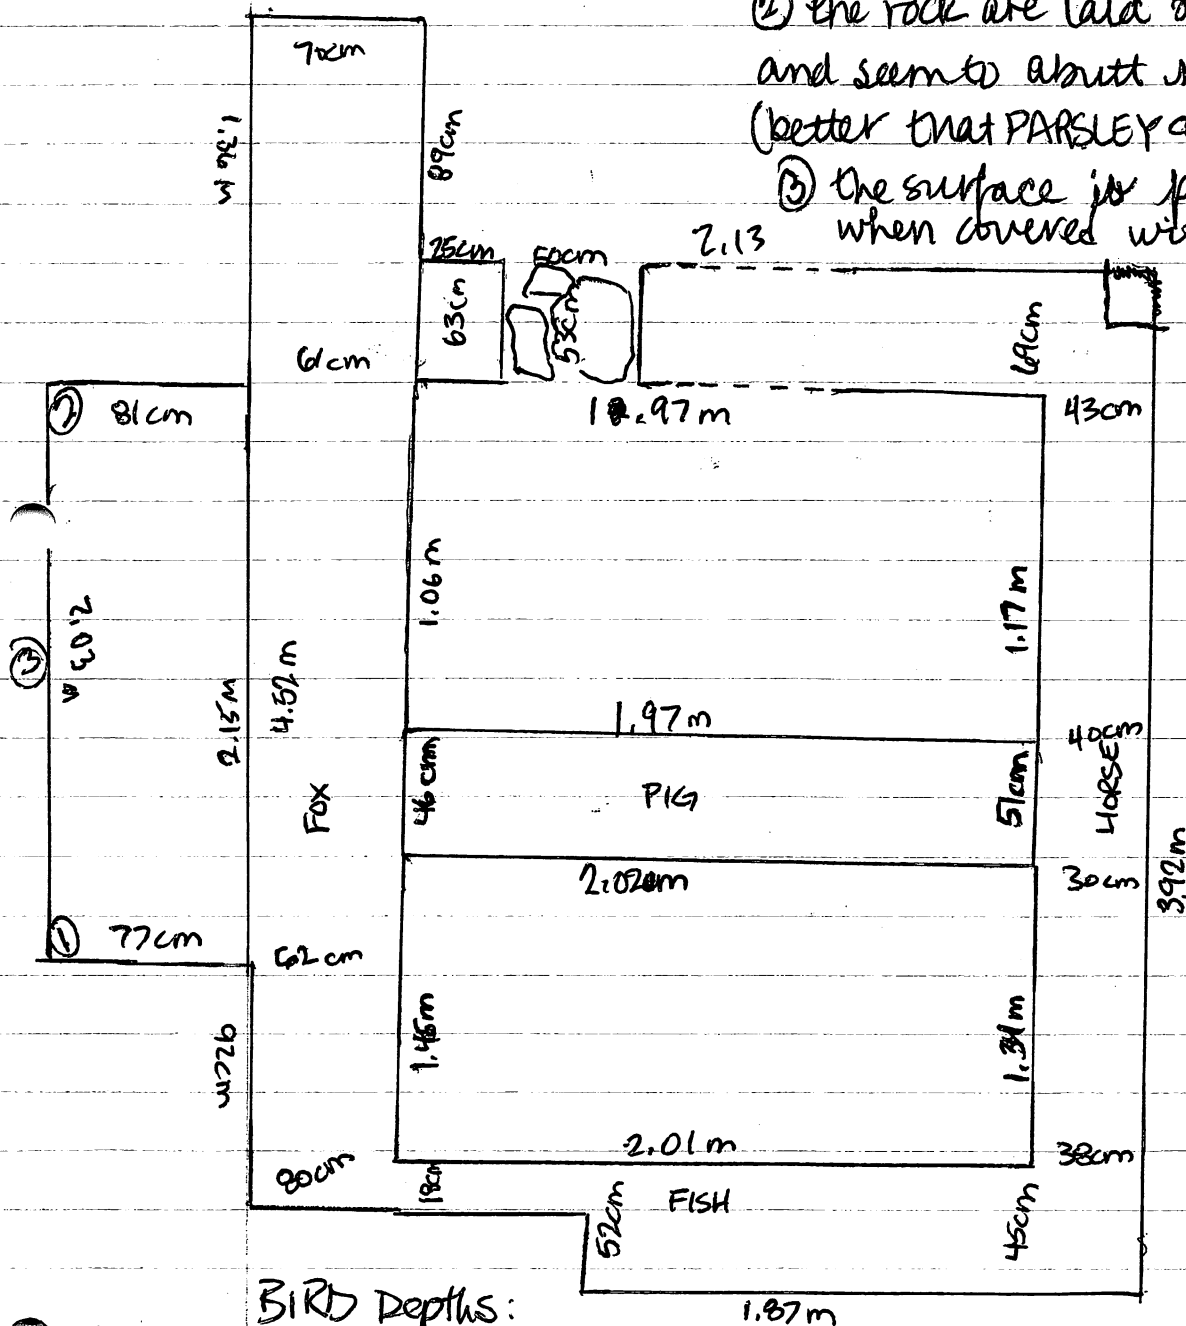 ② the rock are laid
and seem to abutt
(better that PARSLEY
③ the surface is
when covered
70cm
1.36 m
89cm
25cm
50cm
2.13
63cm
53cm
69cm
61cm
② 81cm
1.97m
43cm
1.06m
1.17m
③ 2.03m
2.15m
4.52m
1.97m
40cm
FOX
46cm
PIG
51cm
HORSE
2.02m
30cm
3.92m
① 77cm
62cm
92cm
1.31m
2.01m
38cm
80cm
18cm
52cm
FISH
45cm
BIRD Depths:
1.87m